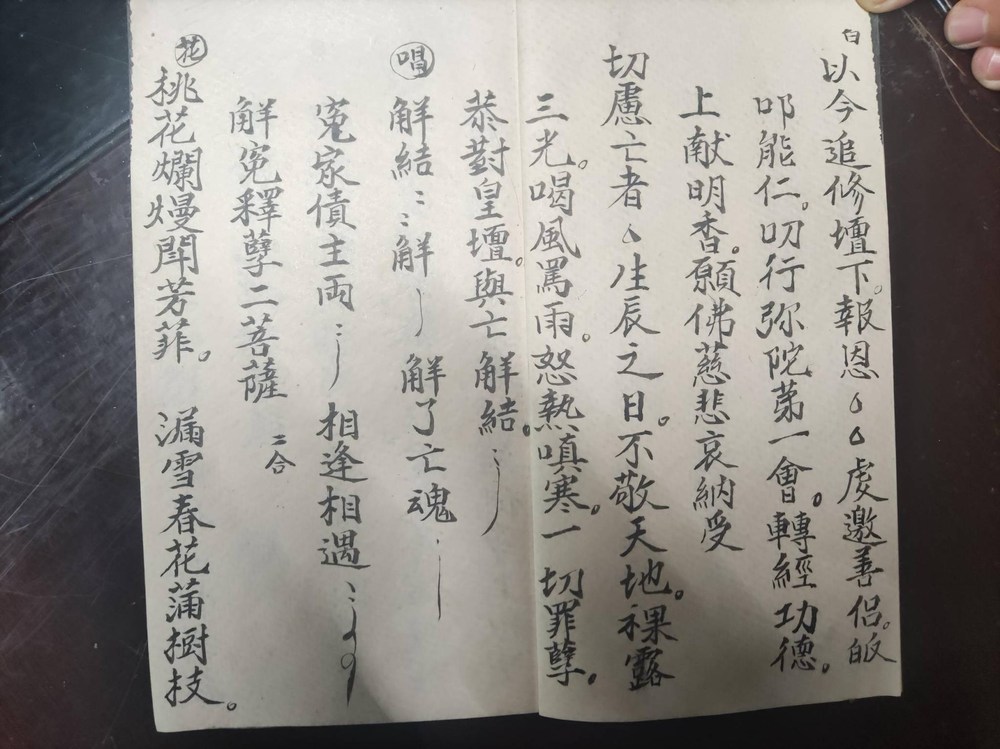 白
以今追修壇下。報恩△△虔邀善侶。皈
叩能仁。叨行弥陀第一會。轉經功德。
上献明香。願佛慈悲哀納受
切慮亡者△生辰之日。不敬天地。裸露
三光。喝風罵雨。怒熱嗔寒。一切罪孽。
恭對皇壇。與亡解結。
唱
解結〻〻解 解了亡魂
寃家債主両〻 相逢相遇〻
解寃釋孽二菩薩 二合
花
桃花爛熳閗芳菲。 漏雪春花蒲樹技。